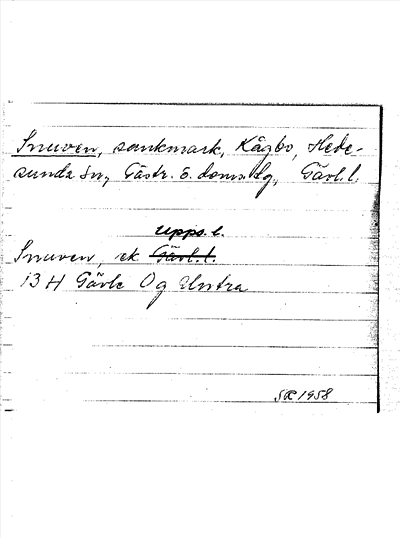 Snuven, sankmark, Kågbo, Hede-
sunda sn, Gästr. ö. doms.lg, Gävl.l.
Upps. l.
Snuven, ek Gävl.l.
13 H Gävle 0 g
SR 1958